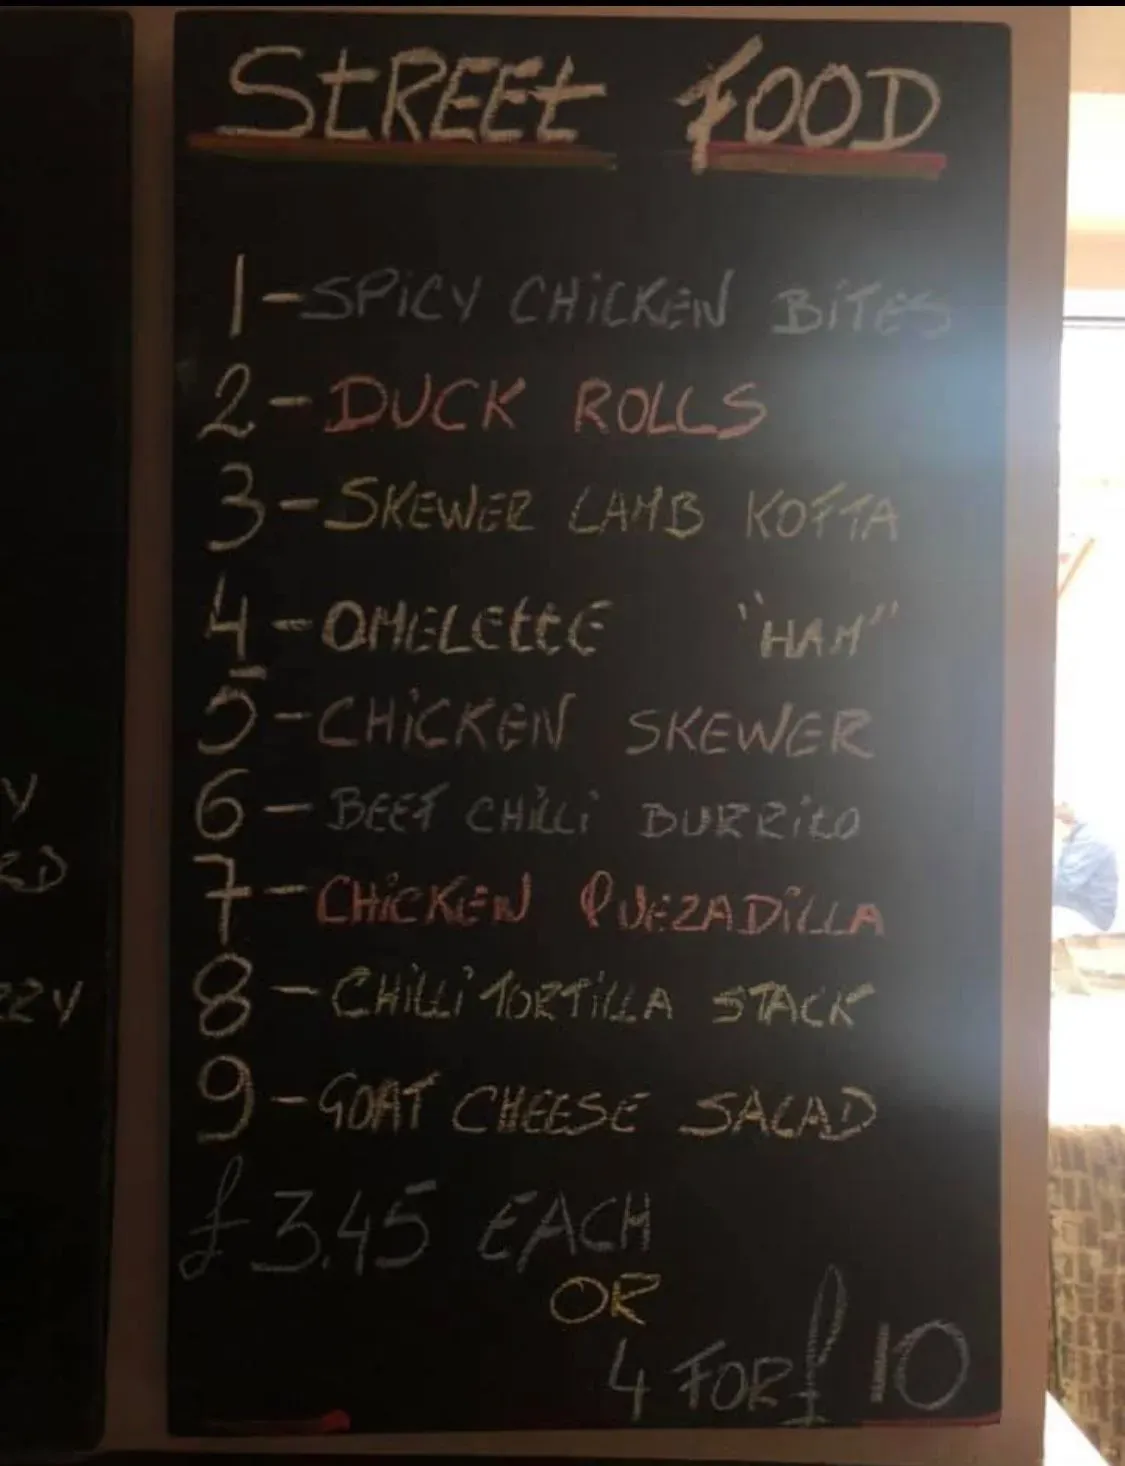 STREET FOOD
1-SPiCY CHiCKEN BiTES
2-DUCK ROLLS
3-SKEWER LAMB KOFTA
4-OMELETTE "HAM"
5-CHiCKEN SKEWER
6-BEEF CHiLLi BURRiTO
7-CHiCKEN QUEZADiLLA
8-CHiLLi TORTiLLA STACK
9-GOAT CHEESE SALAD
£3.45 EACH
OR
4 FOR £10